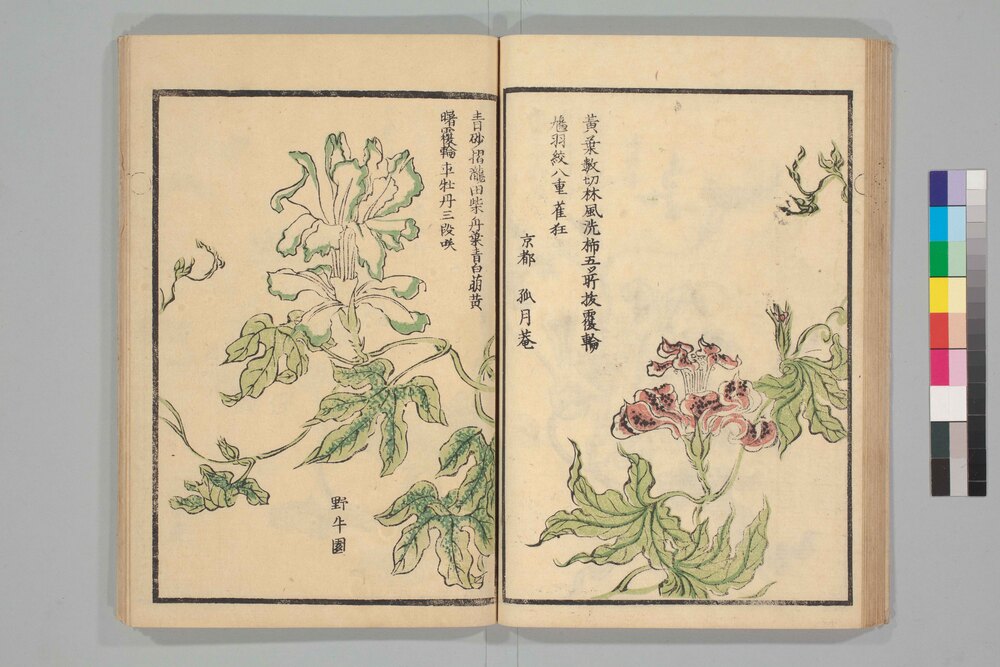 黄葉数切林風洗柿五分所抜覆輪
鳩羽絞八重荏狂
京都 孤月菴
青砂摺瀧田柴舟葉青白萠黄
曙覆輪車牡丹三段咲
野牛園